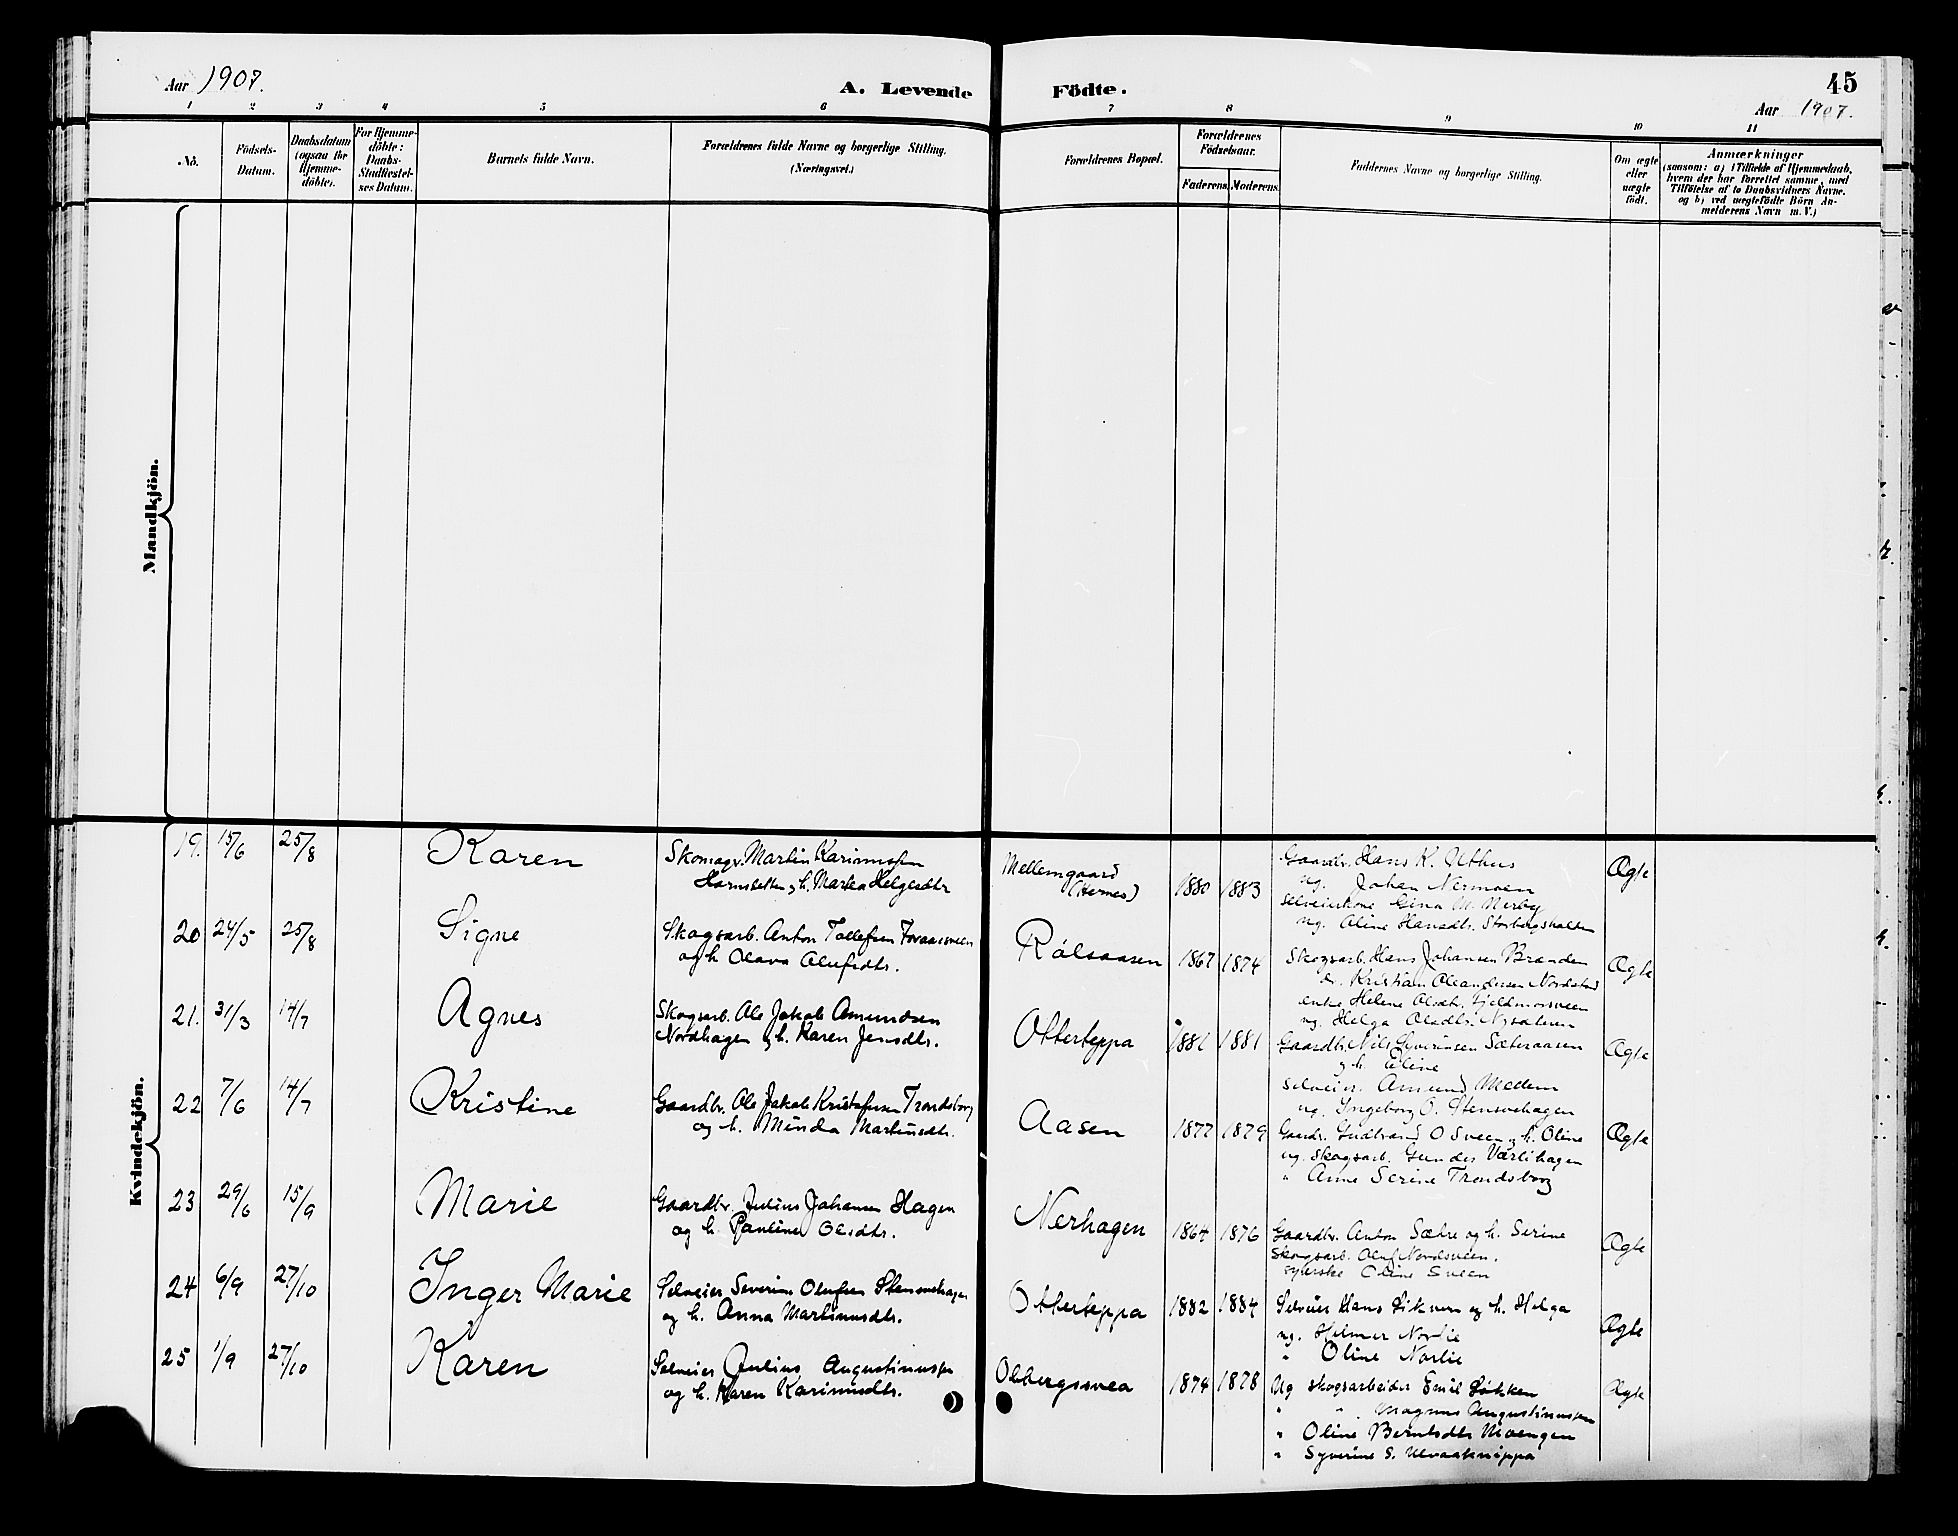 Aar 1907.
A. Levende Födte.
45
Aar 1907.
1 2 3 4 5 6 7 8 9 10 11
No.
Födsels-Datum.
Daabsdatum (ogsaa for Hjemme-döbte).
For Hjemme-döbte: Daabs-Stadfæstel-ses Datum.
Barnets fulde Navn.
Forældrenes fulde Navne og borgerlige Stilling.
(Næringsvei.)
Forældrenes Bopæl.
Forældrenes Födselsaar.
Faderens. Moderens.
Faddernes Navne og borgerlige Stilling.
Om ægte eller uægte födt.
Anmærkninger
(saasom: a) i Tilfælde af Hjemmedaab,
hvem der har forrettet samme, med
Tilföielse af to Daabsvidners Navne.
og b) ved uægtefödte Börn An-
melderens Navn m. V.)
Mandkjön.
Kvindekjön.
19. 15/6 25/8 Karen
Skomagr. Martin Karinussen
og h. Martea Helgesdtr
Mellemgaard
(Hernes)
1880 1883
Gaardbr. Hans K. Uthus
ug. Johan Nermoen
Selveierkone Gina M. Nerby
ug. Aline Hansdtr. Storbergshalten
Ægte
20 24/5 25/8 Signe
Skogsarb. Anton Tollefsen
og h Olava Olufsdtr.
Rölsaasen
1867 1874
Skogsarb. Hans Johansen Brænden
Kristian Oleandersen
enke Helene Olsdtr.
ug. Helga Olsdtr. Nysæteren
Ægte
21. 31/3 14/7 Agnes
Skogsarb. Ole Jakob Amundsen
Nordhagen og h. Karen Jensdtr.
Otterteppa
1881 1881
Gaardbr. Nils Syverinsen Sæteraasen
og h. Oline
Selveier. Amund Mellem
ug. Ingeborg O. Stensvehagen
Ægte
22 7/6 14/7 Kristine
Gaardbr. Ole Jakob Kristofersen Trondsborg
og h. Minda Martinsdtr.
Aasen
1877 1879
Gaardbr. Gudbrand O Sveen og h. Oline
ug. Skogsarb. Gunder Værlihagen
" Anne Serine Trondsborg
Ægte
23 29/6 15/9 Marie
Gaardbr. Julius Johansen Hagen
og h. Pauline Olsdtr.
Nerhagen
1864 1876
Gaardbr. Anton Sætre og h. Serine
Skogsarb. Oluf Nordsveen.
syerske Oline Sveen
Ægte
24 6/9 27/10 Inger Marie
Selveier Severin Olufsen Stensvehagen
og h. Anna Martinusdtr.
Otterteppa
1882 1884
Selveier Hans og h. Helga
ug. Helmer Norlie
" Oline Norlie
Ægte
25 1/9 27/10 Karen
Selveier Julius Augustinussen
og h. Karen Karinusdtr.
Olbergssvea
1874 1878
Ug skogsarbeider Emil Løkken
" " Magnus Augustinussen
" Oline Berntsdtr Moengen
" Syverine S. Ulvaaknappa
Ægte